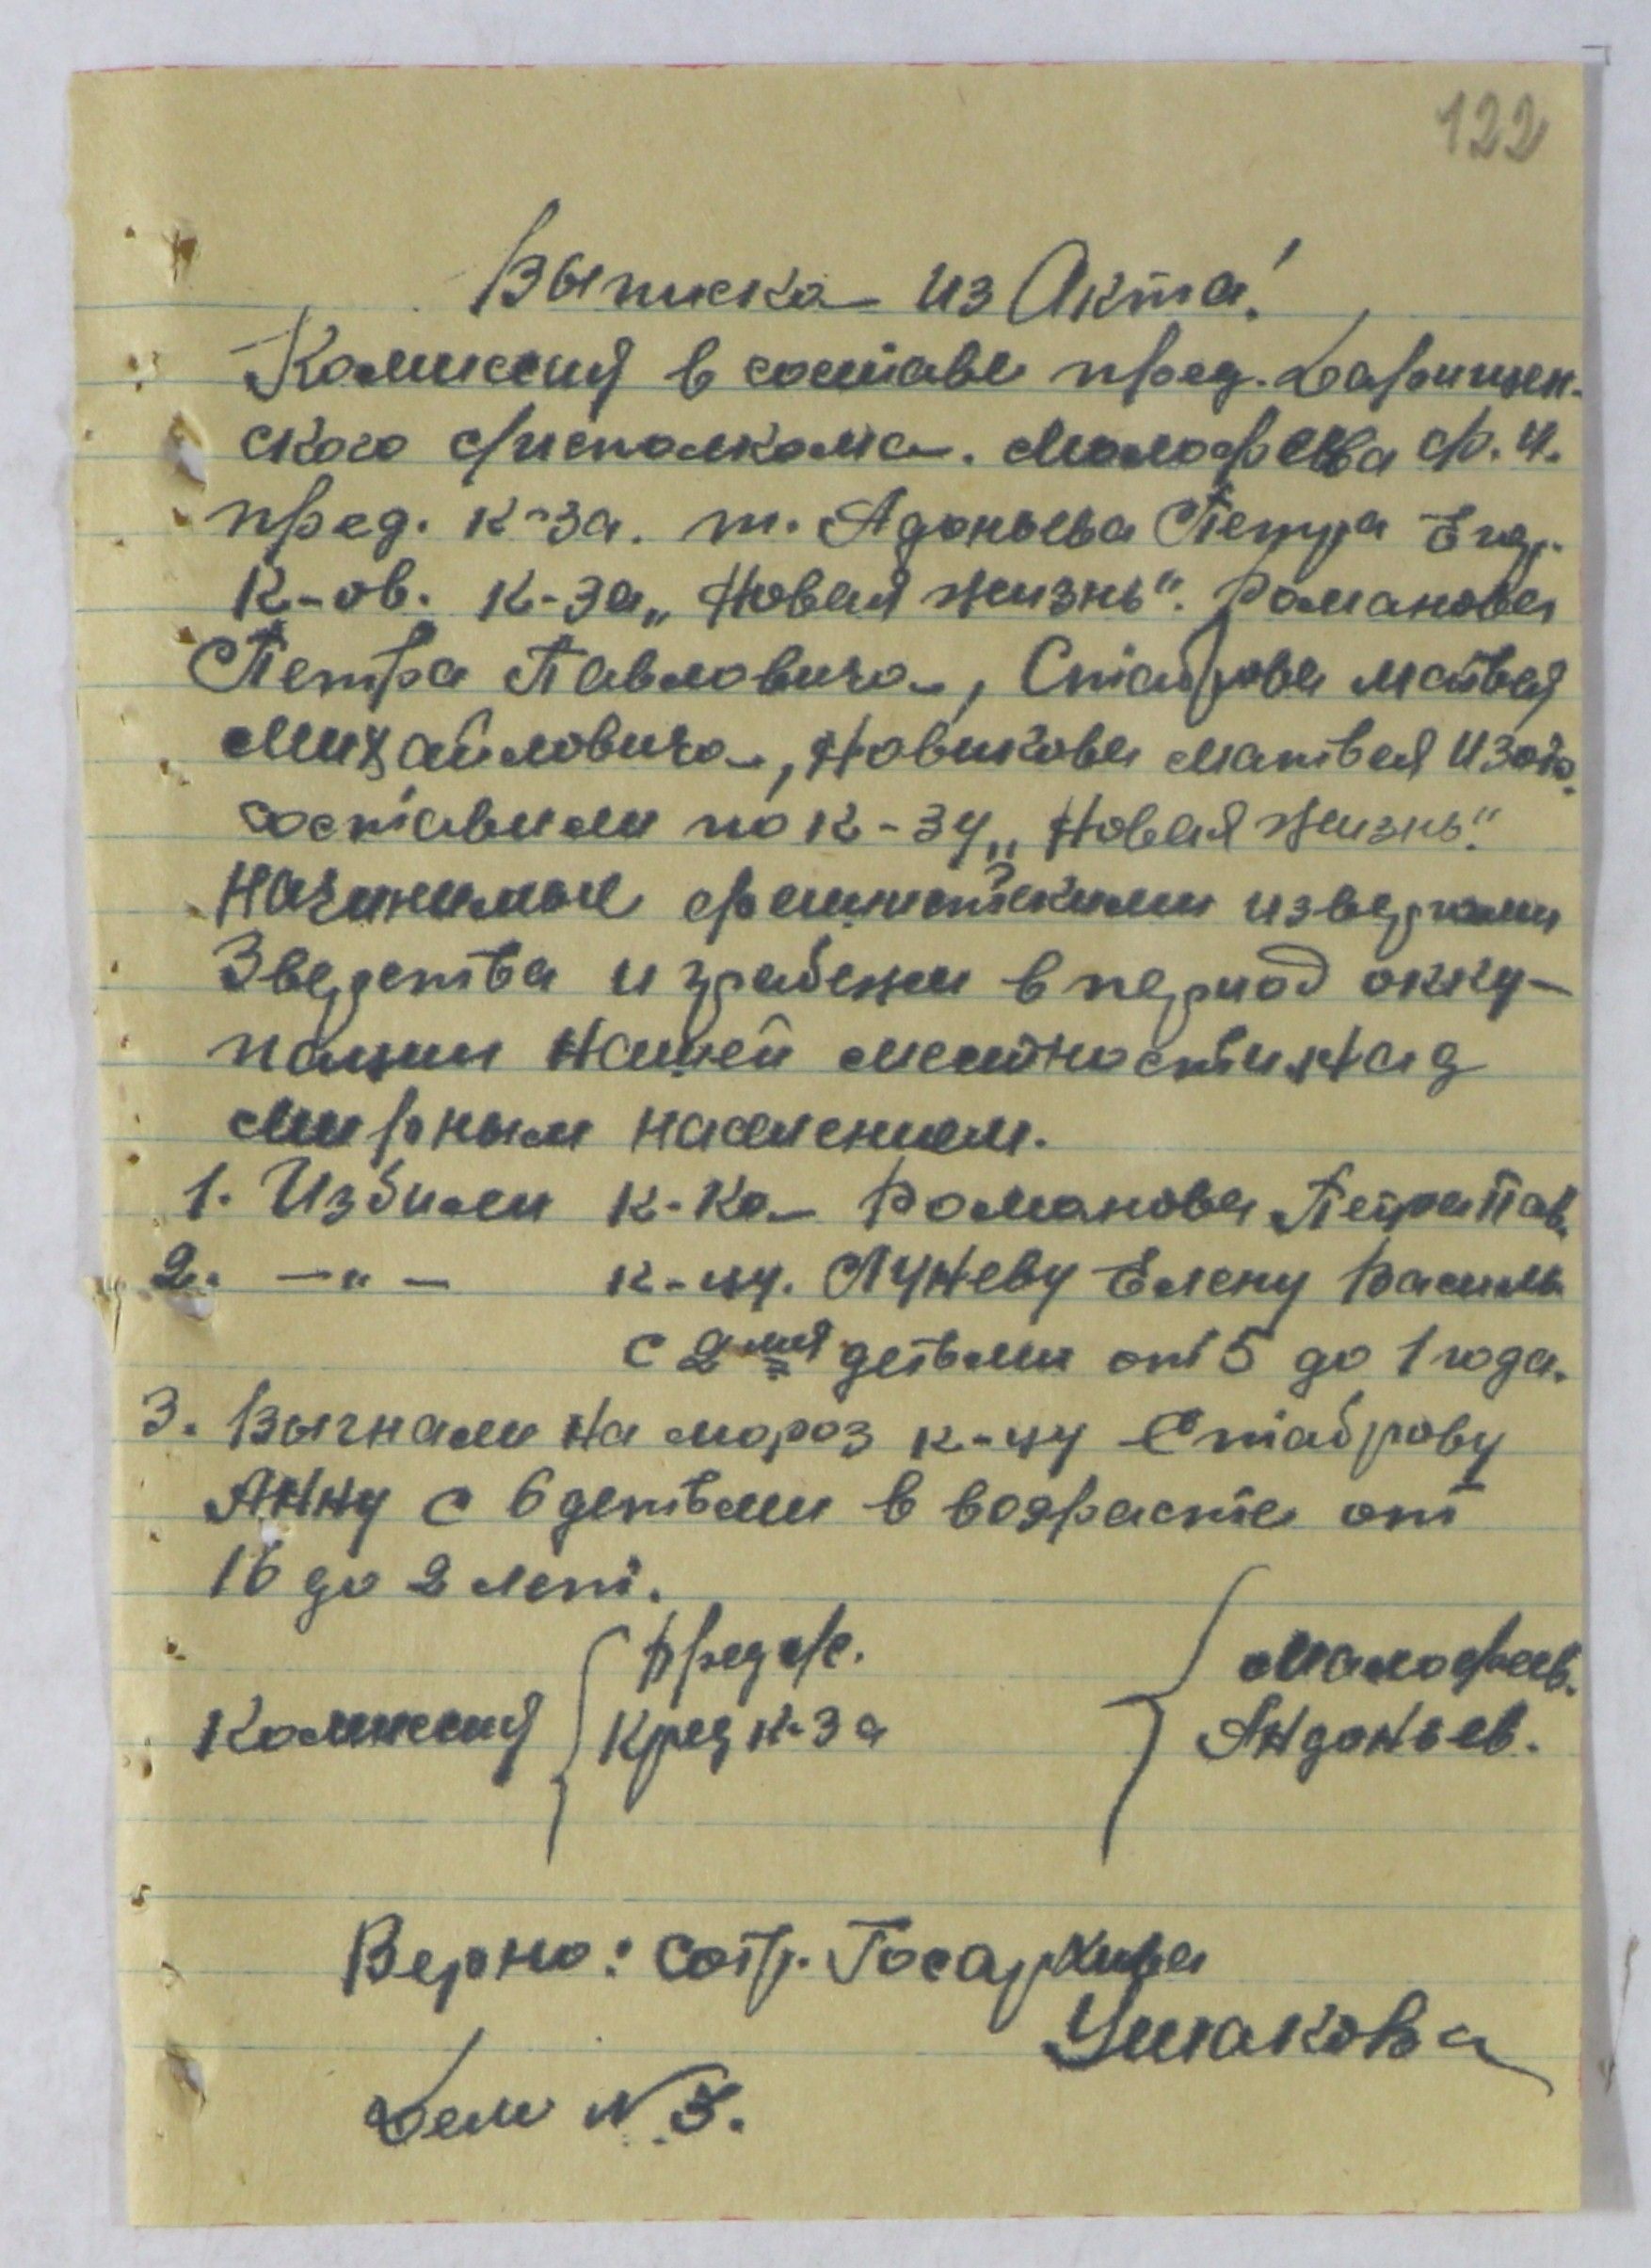 122
Выписка из Акта!
Комиссия в составе пред. Дарищен-
ского рисполкома. Малофеева Ф. И.
пред. к-за. т. Адоньева Петра Егор.
к-ов. к-за „Новая жизнь". Романова
Петра Павловича, Стаброва Матвея
Михайловича, Новикова Матвея Изото.
составили по к-зу „Новая жизнь".
Начинимые фашистскими извергами
Зверства и грабежи в период окку-
пации нашей местности над
мирным населением.
1. Избили к-ка Романова Петра Пав.
2. —"— к-цу. Лужеву Елену Василь
с 2мя детьми от 5 до 1 года.
3. Выгнали на мороз к-цу Стаброву
Анну с 6 детьми в возрасте от
16 до 2 лет.
Комиссия
Пред. Малофеев.
Пред к-за Андоньев.
Верно: Сотр. Госархива
Ушакова
Дело N 3.